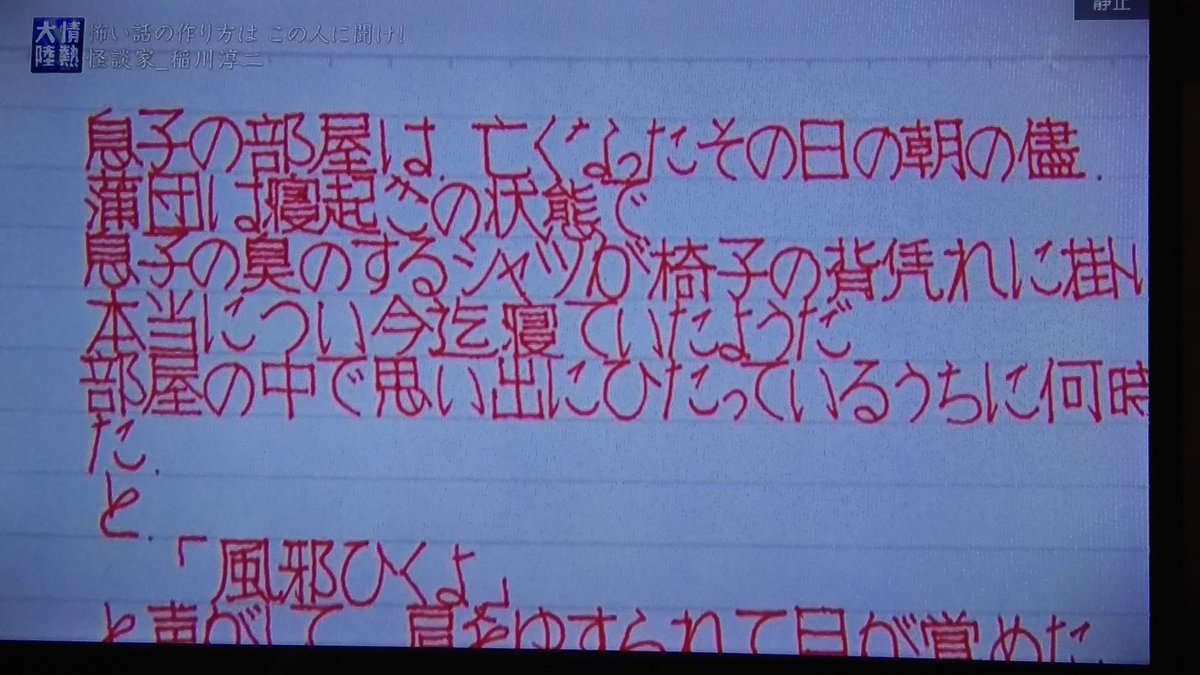 静止
情熱
大陸
怖い話の作り方は この人に聞け!
怪談家_稲川淳二
息子の部屋は、亡くなったその日の朝の儘.
蒲団は寝起きの状態で
息子の臭のするシャツが椅子の背凭れに掛
本当についい今迄寝ていたようだ
部屋の中で思い出にひたっているうちに何時
た.
と.
「風邪ひくよ」
と声がして、肩をゆすられて目が覚めた